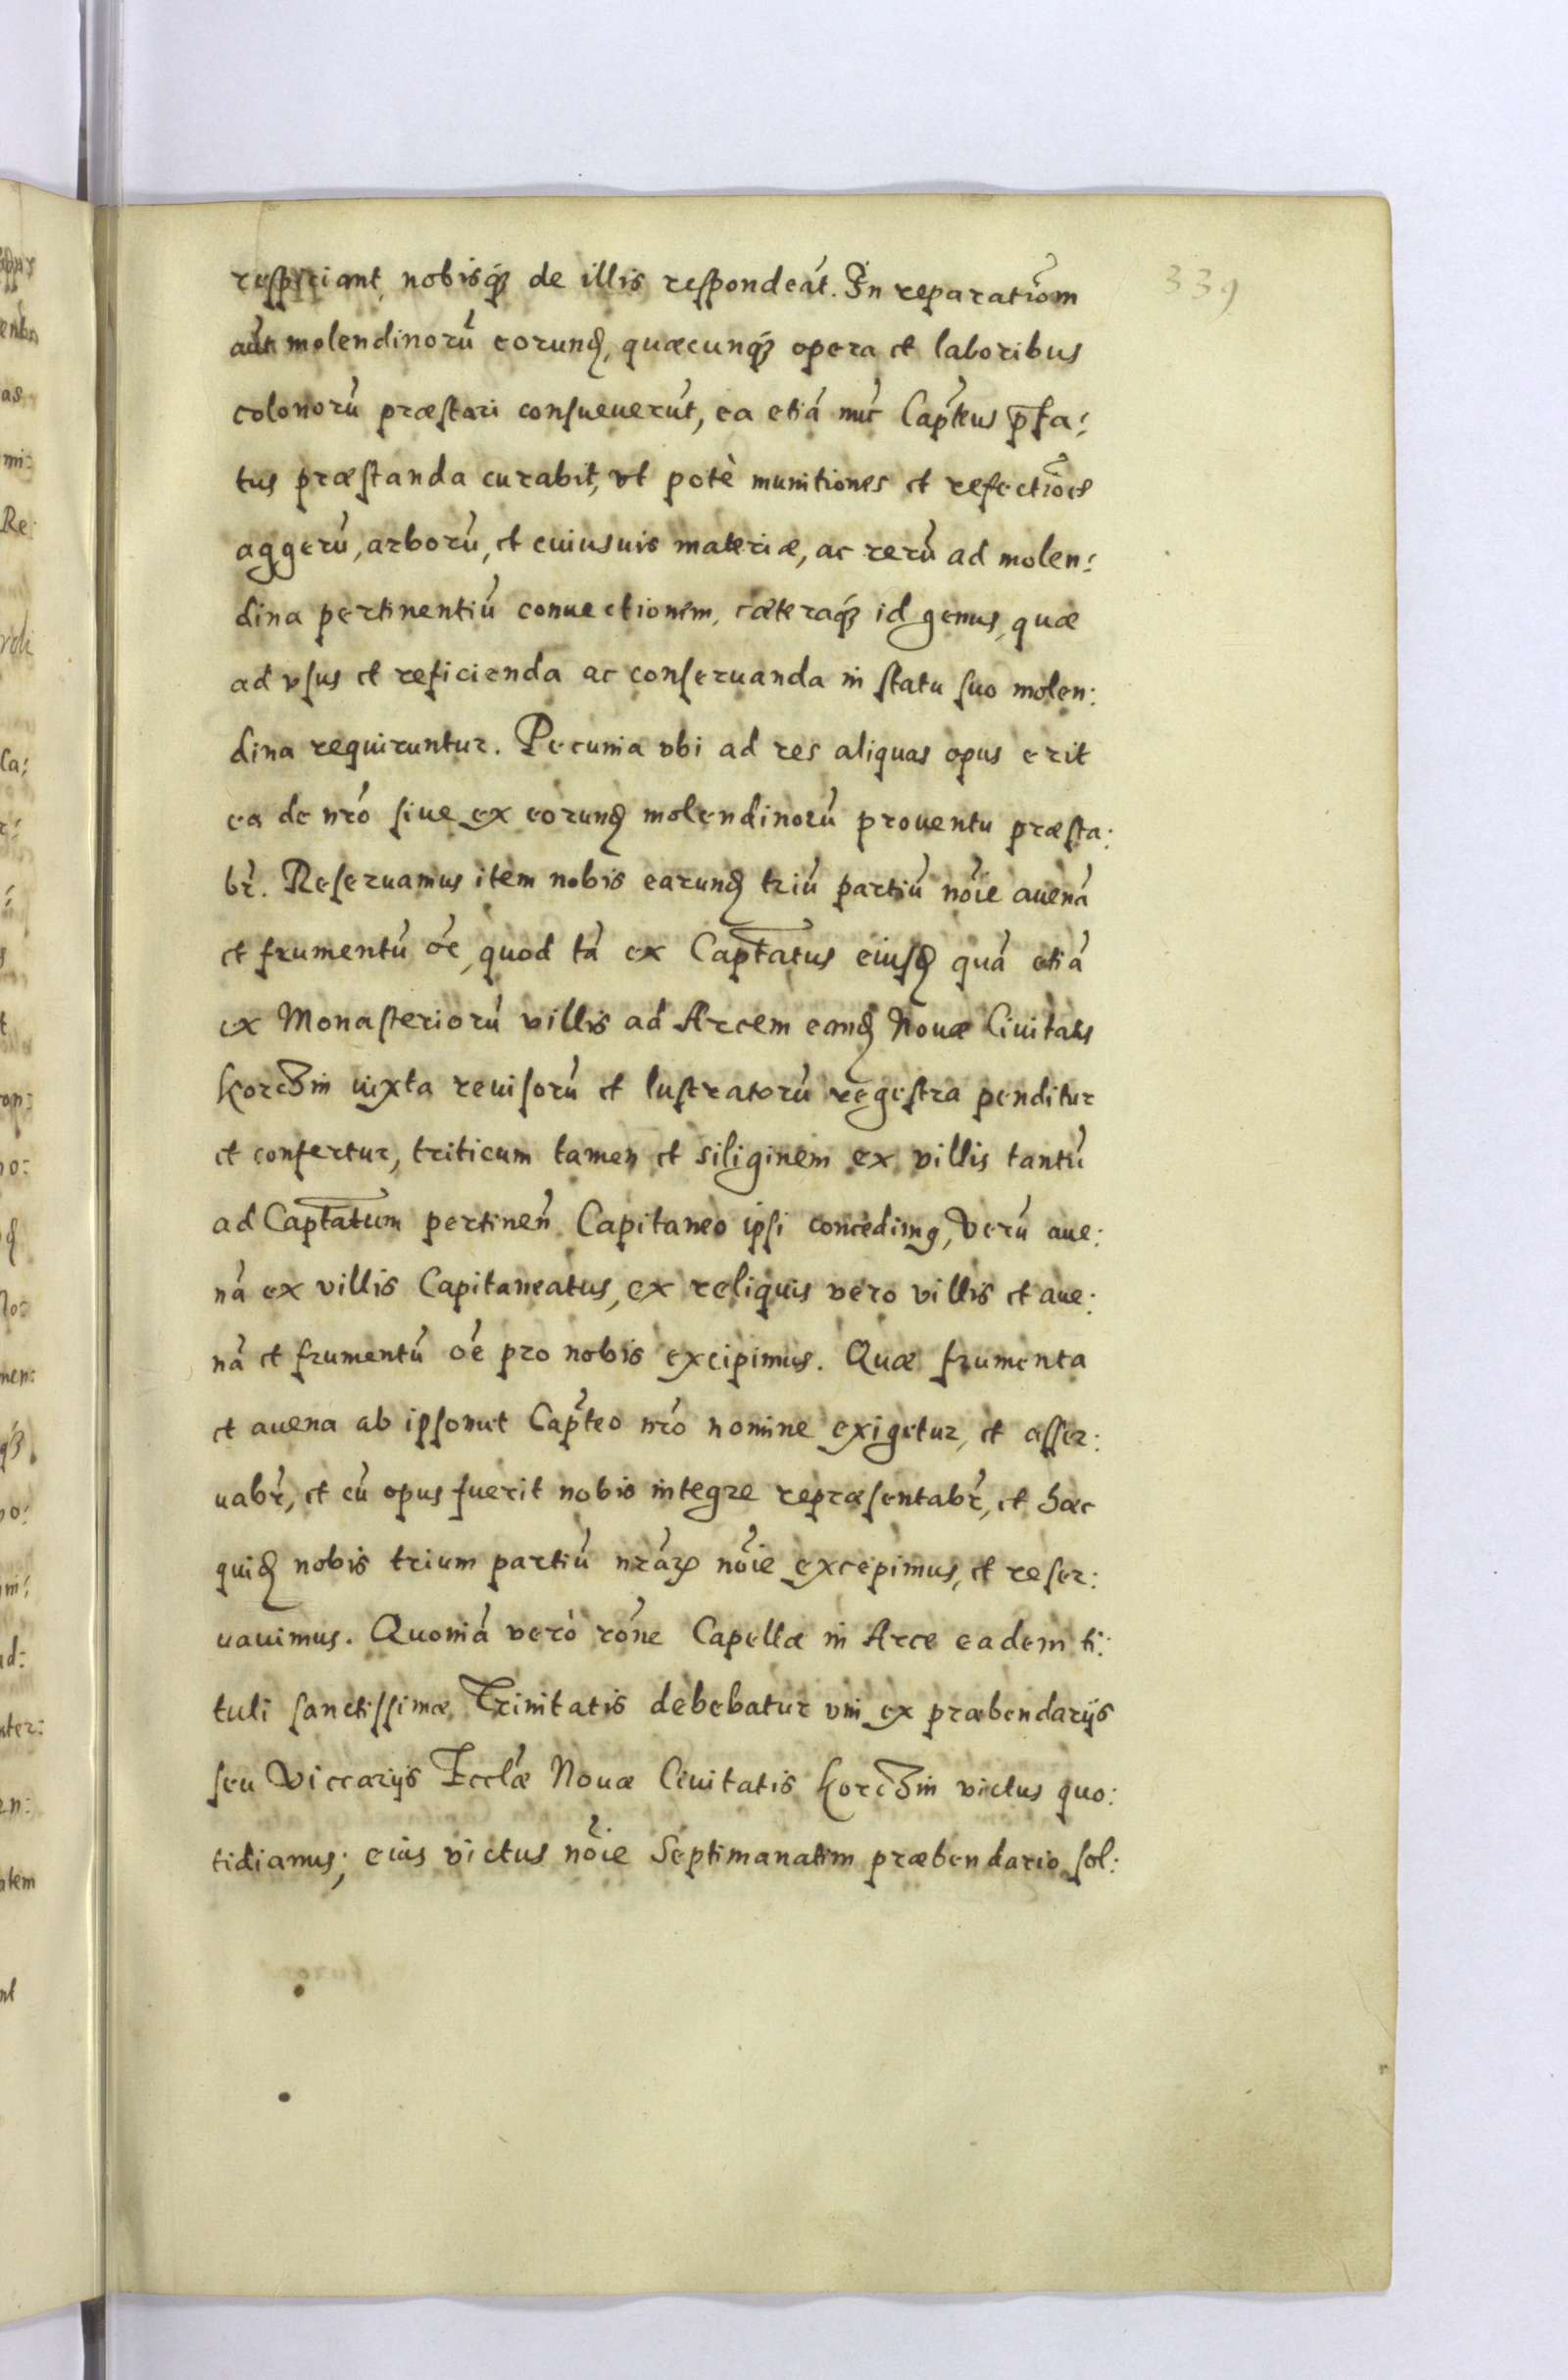 339
respiciant nobisq́ꝫ de illis respondeát. In reparatiõm
aút molendinorũ eorunď, quæcunq́ꝫ opera et laboribus
colonorũ præstari consueuerũt, ea etiá nũc Capẽteus p̃fa:
tus præstanda curabit, vt potè munitiones et refectiões
aggerũ, arborũ, et cuiusuis materiæ, ac rerũ ad molen:
dina pertinentiũ conuectionem, cæteraq́ꝫ id genus, quæ
ad vsus et reficienda ac conseruanda in statu suo molen:
dina requiruntur. Pecunia vbi ad res aliquas opus erit
ea de nr̃o siue ex eorunď molendinorũ prouentu præsta:
br̃. Reseruamus item nobis earunď triũ partiũ nõie auená
et frumentũ óe, quod tá ex Captatus eiusď quá etiá
ex Monasteriorũ villis ad Arcem eanď Nouæ Ciuitatis
Korczin iuxta reuisorũ et lustratorũ regestra penditur
et confertur, triticum tamen et siliginem ex villis tantũ
ad Captatum pertineñ Capitaneo ipsi concedimꝰ, verũ aue:
ná ex villis Capitaneatus, ex reliquis vero villis et aue:
ná et frumentũ óe pro nobis excipimus. Quæ frumenta
et auena ab ipsomet Capteo nr̃o nomine exigetur, et asser:
uabr̃, et cũ opus fuerit nobis integre repræsentabr̃, et hæc
quiď nobis trium partiũ nr̃aꝝ nõie excepimus, et reser:
uauimus. Quoniá verò rõne Capellæ in Arce eadem ti:
tuli sanctissimæ Trinitatis debebatur vni ex præbendarijs
seu Viccarijs Ecclæ Nouæ Ciuitatis Korczin victus quo:
tidianus; eius victus nõie Septimanatim præbendario sol: